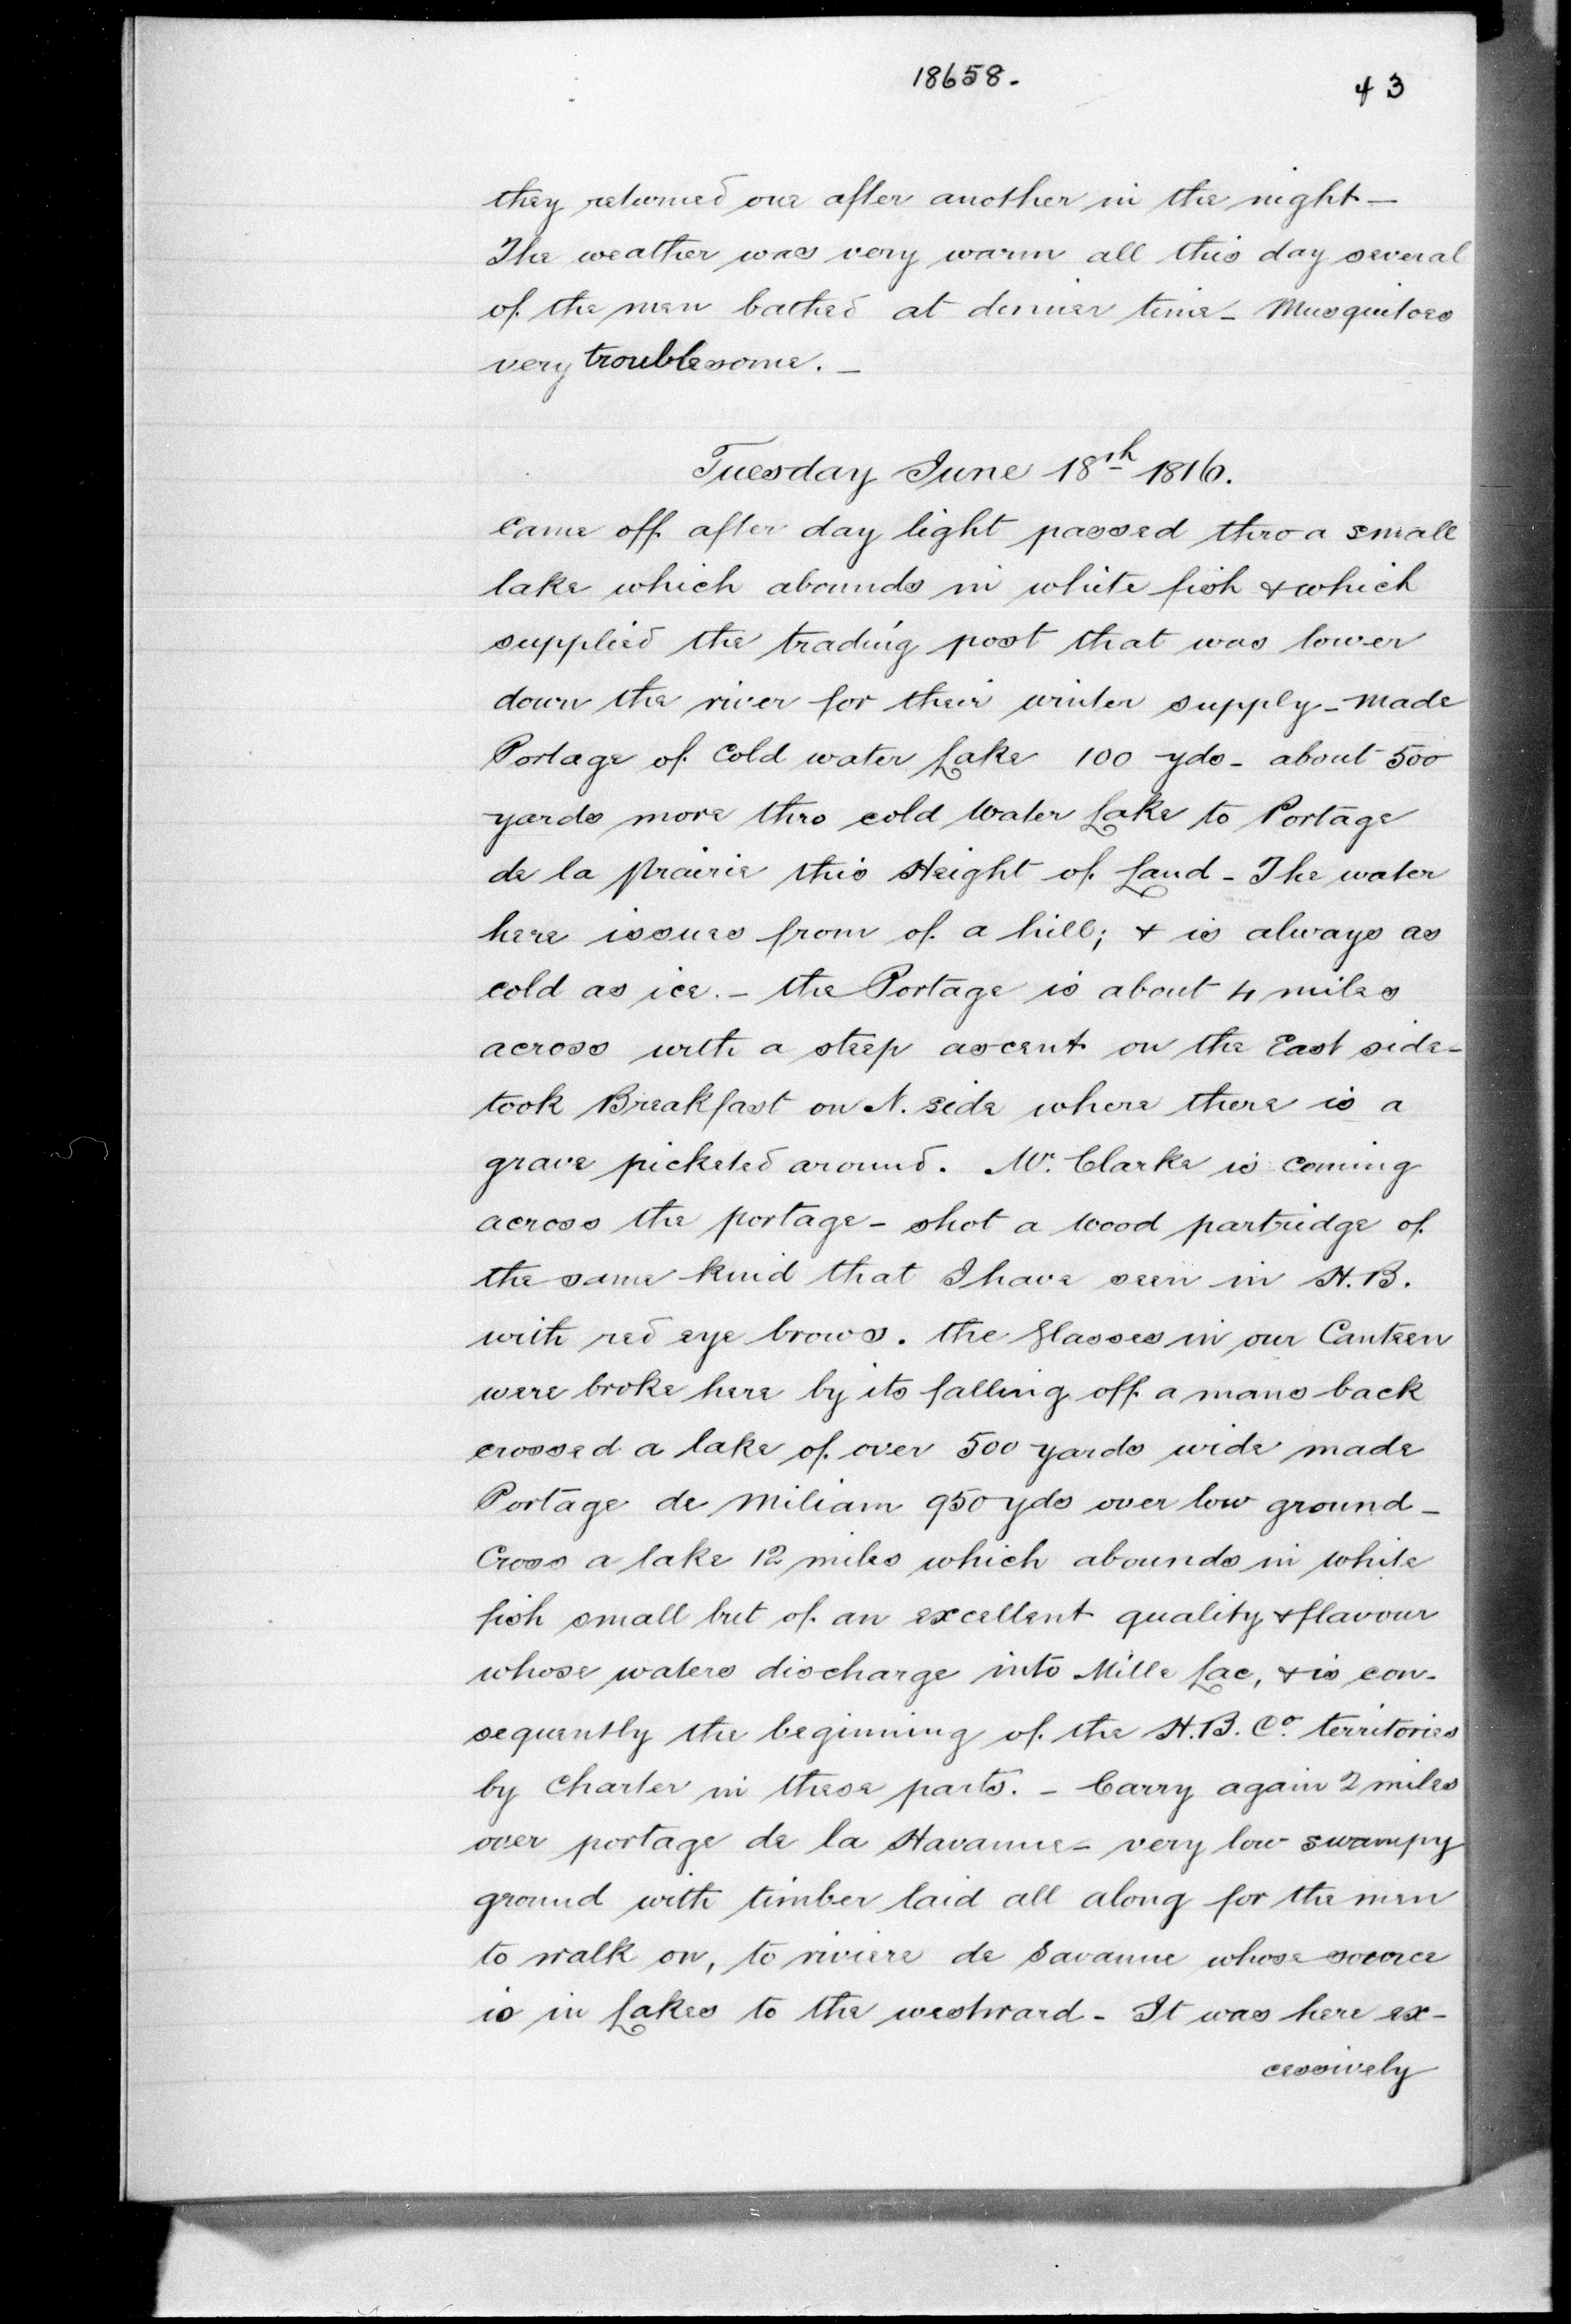 18658.
43
they returned one after another in the night —
The weather was very warm all this day several
of the men bathed at dinner time – Musquitoes
very troublesome. –
Tuesday June 18th 1816.
Came off after day light passed thro a small
lake which abounds in white fish & which
supplied the trading post that was lower
down the river for their winter supply – Made
Portage of Cold water Lake 100 yds – about 500
yards more thro cold Water Lake to Portage
de la prairie this Height of Land – The water
here issues from of a hill; & is always as
cold as ice. – the Portage is about 4 miles
across with a steep ascent on the East side –
took Breakfast on N. side where there is a
grave picketed around. Mr. Clarke is coming
across the portage – shot a wood partridge of
the same kind that I have seen in H.B.
with red eye brows. the glasses in our Canteen
were broke here by its falling off a mans back
crossed a lake of over 500 yards wide made
Portage de Miliam 950 yds over low ground –
Cross a lake 12 miles which abounds in white
fish small but of an excellent quality & flavour
whose waters discharge into Mille Lac, & is con-
sequently the beginning of the H.B. Co. territories
by Charter in these parts. – Carry again 2 miles
over portage de la Havanne – very low swampy
ground with timber laid all along for the men
to walk on, to riviere de Savanne whose source
is in Lakes to the westward – It was here ex-
cessively